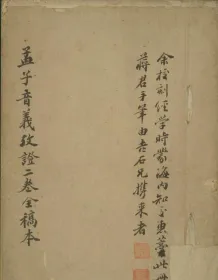 余校刻經學時蒙海内知交惠藁此
蔣君手筆由吾石兄携来者
孟子音義攷證二卷全稿本